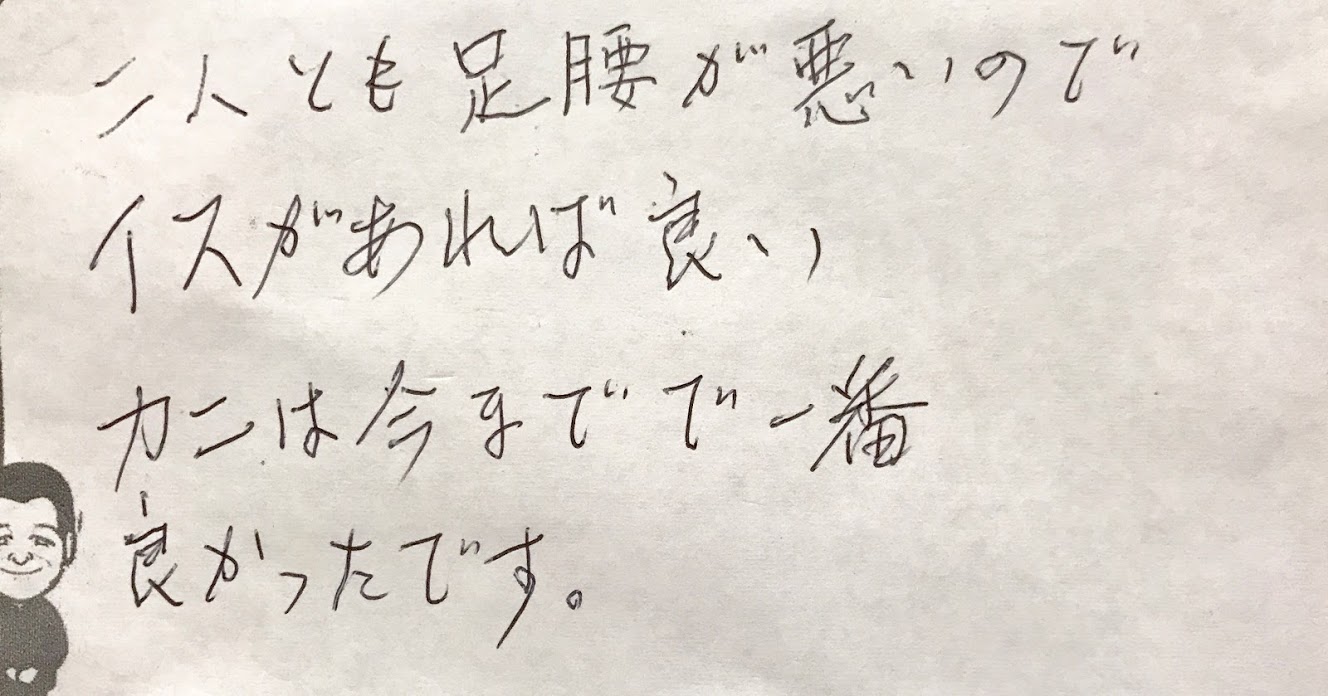 二人とも足腰が悪いので
イスがあれば良い
カニは今までで一番
良かったです。